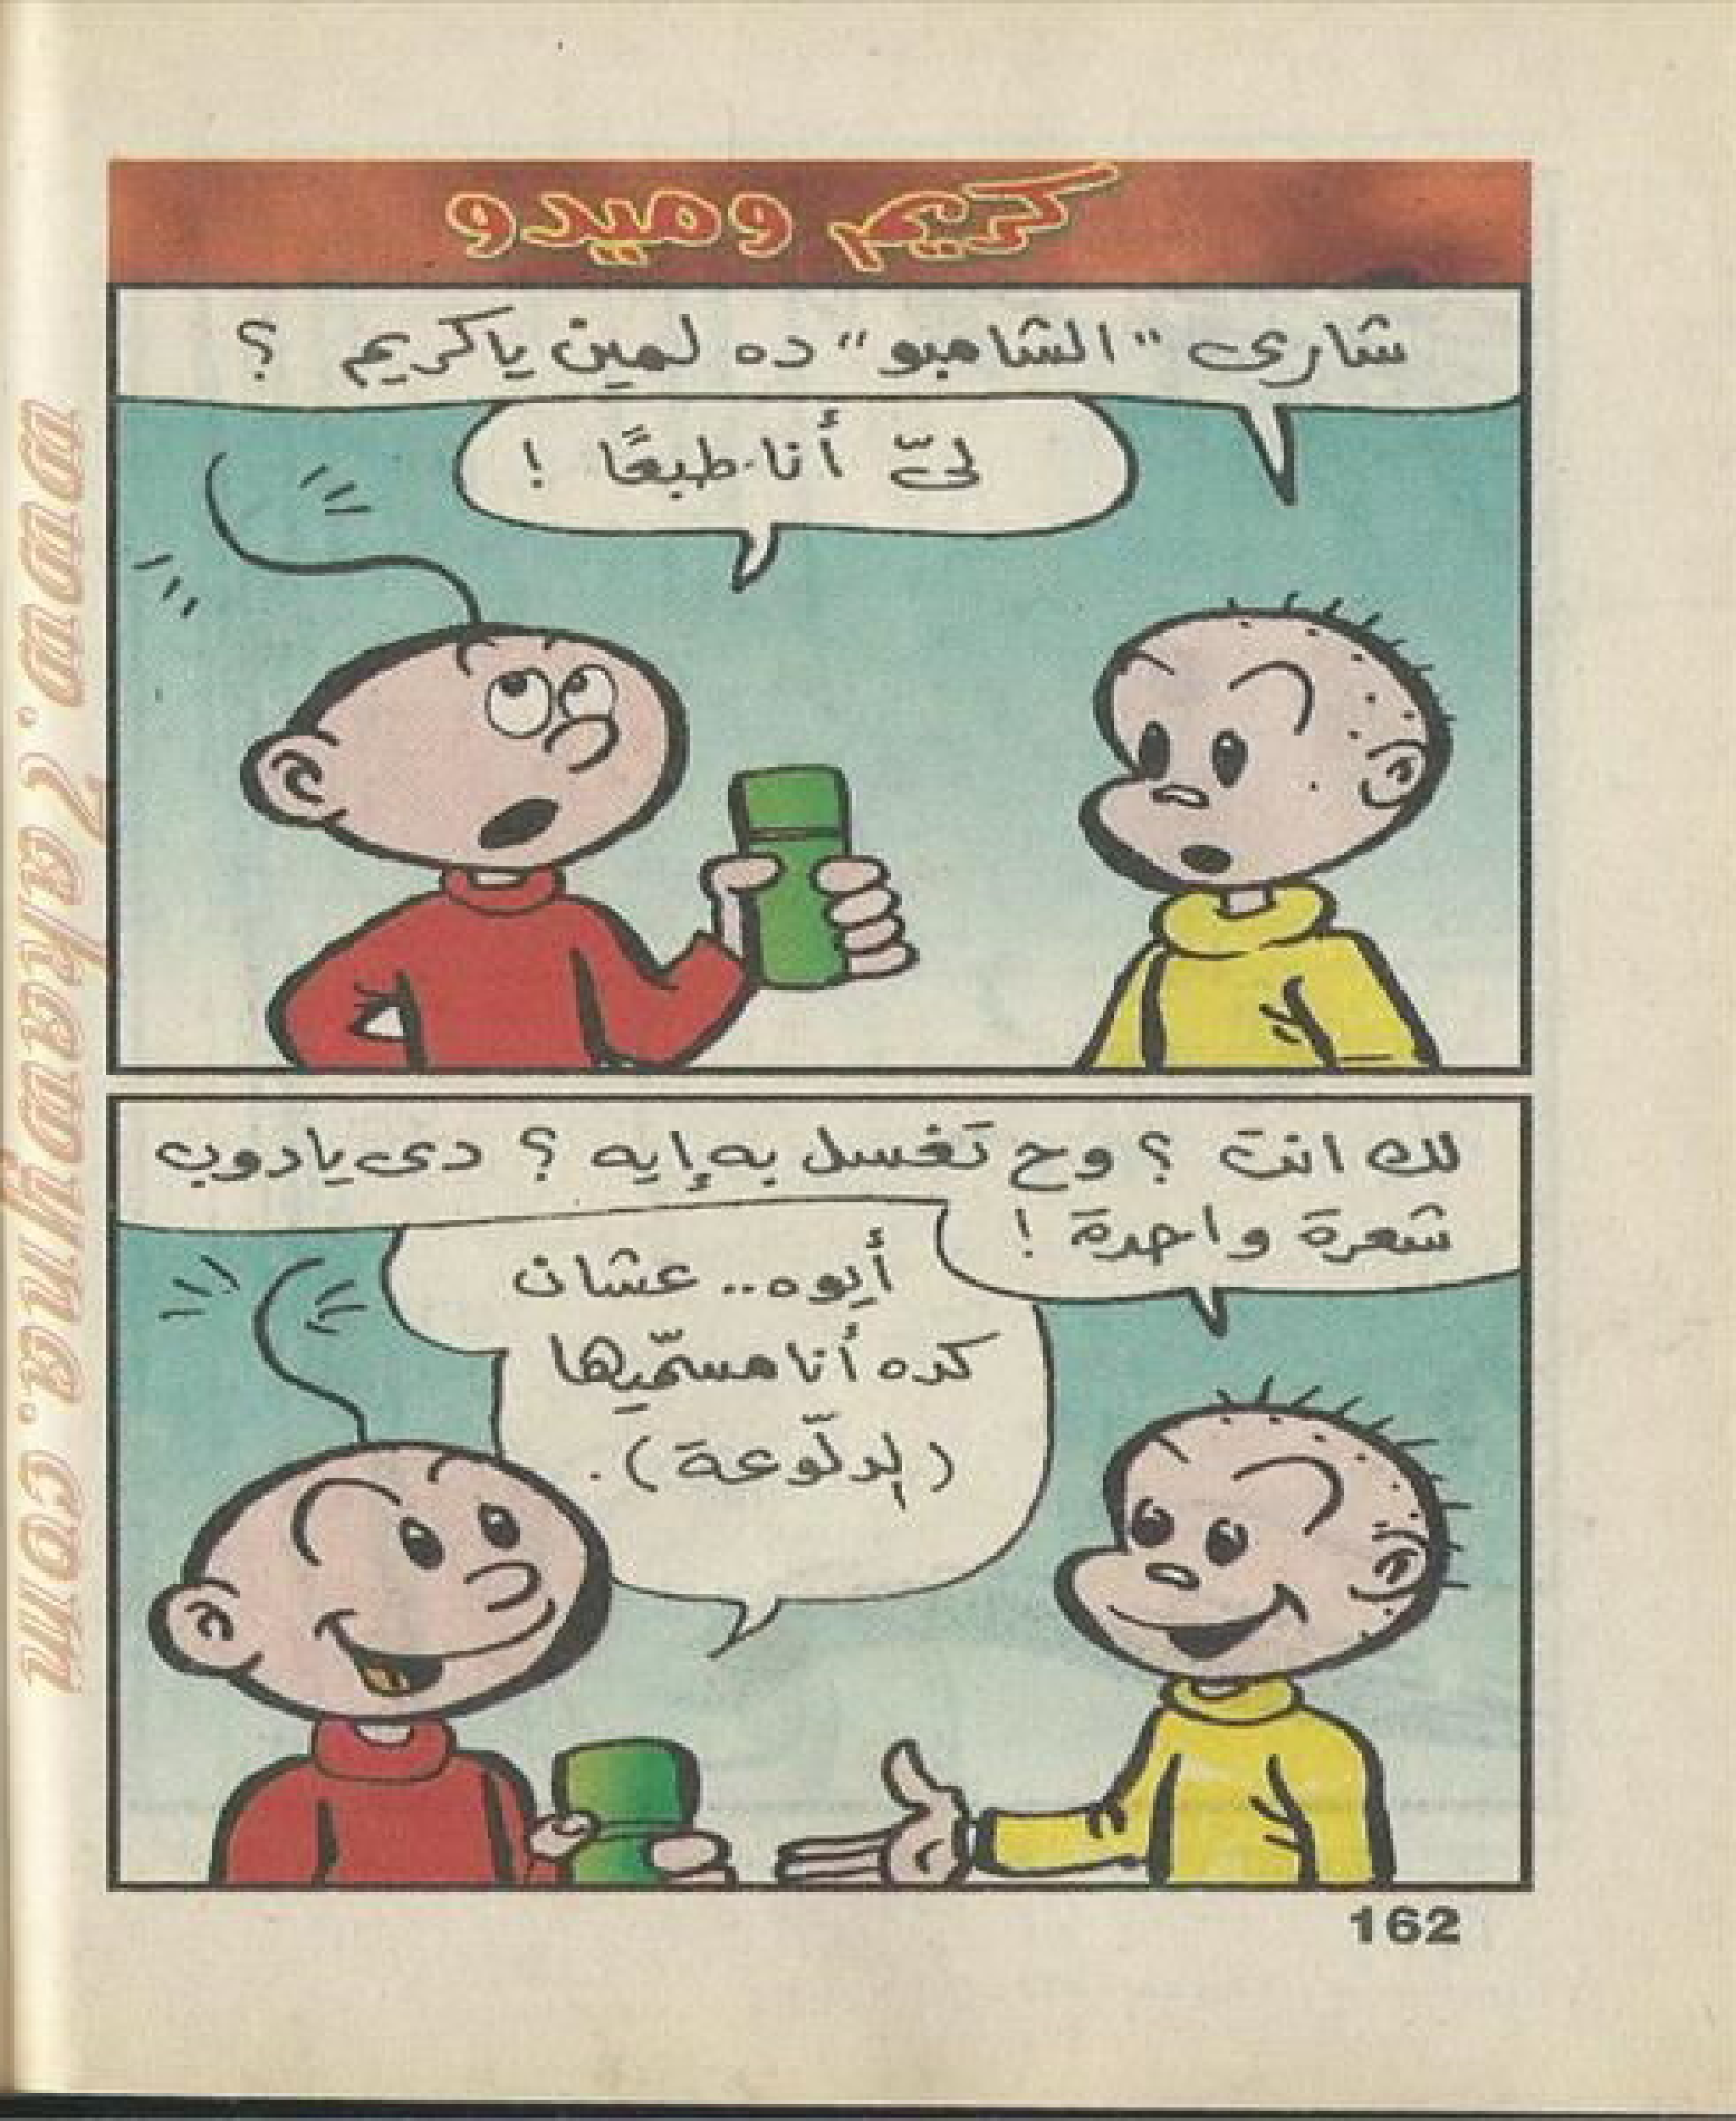 كريم وميدو
شارى "الشامبو" ده لمين ياكريم ؟
لىّ أنا طبعًا !
لك انت ؟ وح تغسل به إيه ؟ دى يادوب
شعرة واحدة !
أيوه.. عشان
كده أنا مسمّيها
(الدلّوعة).
162
www.liilas.com